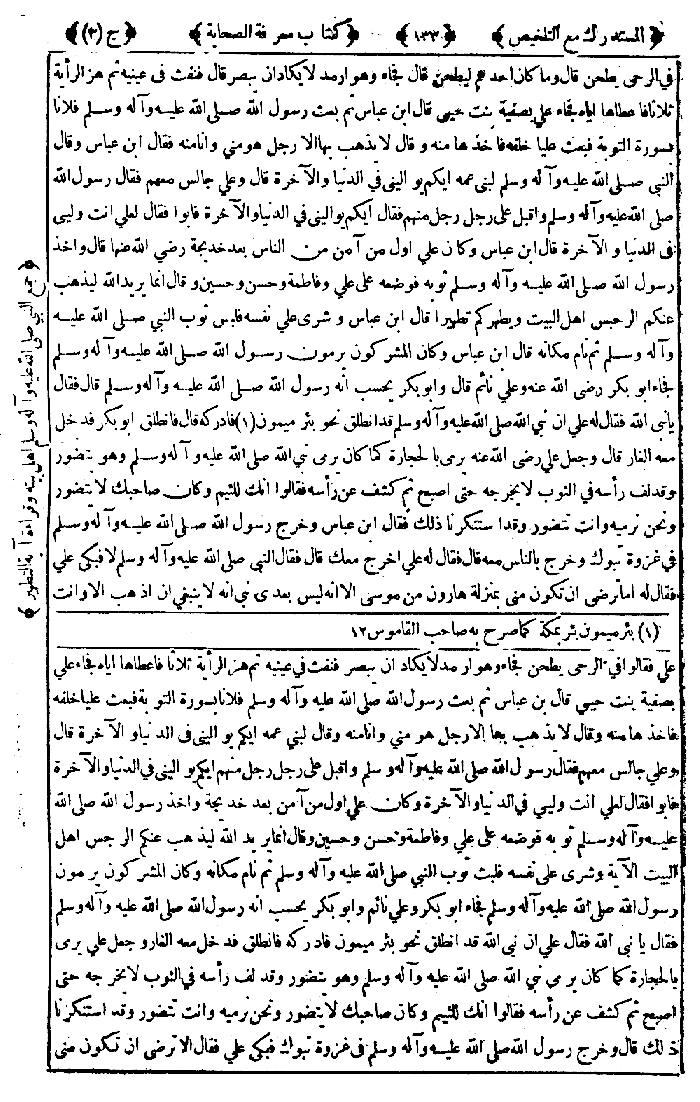 ﴿ المستدرك مع التلخيص ﴾ ﴿ ١٣٣ ﴾ ﴿ كتاب معرفة الصحابة ﴾ ﴿ ج (٣) ﴾
في الرحى يطحن قال وما كان احدهم ليطحن قال فجاء وهو ارمد لا يكاد ان يبصر قال فنفث في عينيه ثم هز الرأية
ثلاثا فاعطاها اياه فجاء علي بصفية بنت حيي قال ابن عباس ثم بعث رسول الله صلى الله عليه وآله وسلم فلانا
بسورة التوبة فبعث عليا خلفه فاخذها منه وقال لا يذهب بها الا رجل هو مني وانا منه فقال ابن عباس وقال
النبي صلى الله عليه وآله وسلم لبني عمه ايكم يواليني في الدنيا والآخرة قال وعلي جالس معهم فقال رسول الله
صلى الله عليه وآله وسلم واقبل على رجل رجل منهم فقال أيكم يواليني في الدنيا والآخرة فابوا فقال لعلي انت وليي
في الدنيا والآخرة قال ابن عباس وكان علي اول من آمن من الناس بعد خديجة رضي الله عنها قال واخذ
رسول الله صلى الله عليه وآله وسلم ثوبه فوضعه على علي وفاطمة وحسن وحسين و قال انما يريد الله ليذهب
عنكم الرجس اهل البيت ويطهركم تطهيرا قال ابن عباس و شرى علي نفسه فلبس ثوب النبي صلى الله عليه
وآله وسلم ثم نام مكانه قال ابن عباس وكان المشركون يرمون رسول الله صلى الله عليه وآله وسلم
فجاء ابو بكر رضى الله عنه وعلي نائم قال وابو بكر يحسب انه رسول الله صلى الله عليه وآله وسلم قال فقال
يا نبي الله فقال له علي ان نبي الله صلى الله عليه وآله وسلم قد انطلق نحو بئر ميمون (١) فادركه قال فانطلق ابو بكر فدخل
معه الغار قال وجعل علي رضى الله عنه يرمى بالحجارة كما كان يرمى نبي الله صلى الله عليه وآله وسلم وهو يتضور
وقد لف رأسه في الثوب لا يخرجه حتى اصبح ثم كشف عن رأسه فقالوا انك للئيم وكان صاحبك لا يتضور
ونحن نرميه وانت تتضور وقد استنكرنا ذلك فقال ابن عباس وخرج رسول الله صلى الله عليه وآله وسلم
في غزوة تبوك وخرج بالناس معه قال فقال له علي اخرج معك قال فقال النبي صلى الله عليه وآله وسلم لا فبكى علي
فقال له اما ترضى ان تكون منى بمنزلة هارون من موسى الا انه ليس بعدى نبي انه لا ينبغي ان اذهب الا وانت
(١) بئر ميمون بئر بمكة كما صرح به صاحب القاموس ١٢
علي فقالوا في الرحى يطحن فجاء وهو ارمد لا يكاد ان يبصر فنفث في عينيه ثم هز الرأية ثلاثا فاعطاها اياه فجاء علي
بصفية بنت حيي قال بن عباس ثم بعث رسول الله صلى الله عليه وآله وسلم فلانا بسورة التوبة فبعث عليا خلفه
فاخذها منه وقال لا يذهب بها الا رجل هو مني وانا منه وقال لبني عمه ايكم يواليني في الدنيا والآخرة قال
وعلي جالس معهم فقال رسول الله صلى الله عليه وآله وسلم واقبل على رجل رجل منهم ايكم يواليني في الدنيا والآخرة
فابوا فقال لعلي انت وليي في الدنيا والآخرة وكان علي اول من آمن بعد خديجة واخذ رسول الله صلى الله
عليه وآله وسلم ثوبه فوضعه على علي وفاطمة وحسن وحسين وقال انما يريد الله ليذهب عنكم الرجس اهل
البيت الآية وشرى على نفسه فلبث ثوب النبي صلى الله عليه وآله وسلم ثم نام مكانه وكان المشركون يرمون
رسول الله صلى الله عليه وآله وسلم فجاء ابو بكر وعلي نائم وابو بكر يحسب انه رسول الله صلى الله عليه وآله وسلم
فقال يا نبي الله فقال علي ان نبي الله قد انطلق نحو بئر ميمون فادركه فانطلق فدخل معه الغار وجعل علي يرمى
بالحجارة كما كان يرمى نبي الله صلى الله عليه وآله وسلم وهو يتضور وقد لف رأسه في الثوب لا يخرجه حتى
اصبح ثم كشف عن رأسه فقالوا انك للئيم وكان صاحبك لا يتضور ونحن نرميه وانت تتضور وقد استنكرنا
ذلك قال وخرج رسول الله صلى الله عليه وآله وسلم في غزوة تبوك فبكى علي فقال الا ترضى ان تكون منى
﴿ جمع النبي صلى الله عليه وآله وسلم اهل بيته وقراءة آية التطهير ﴾